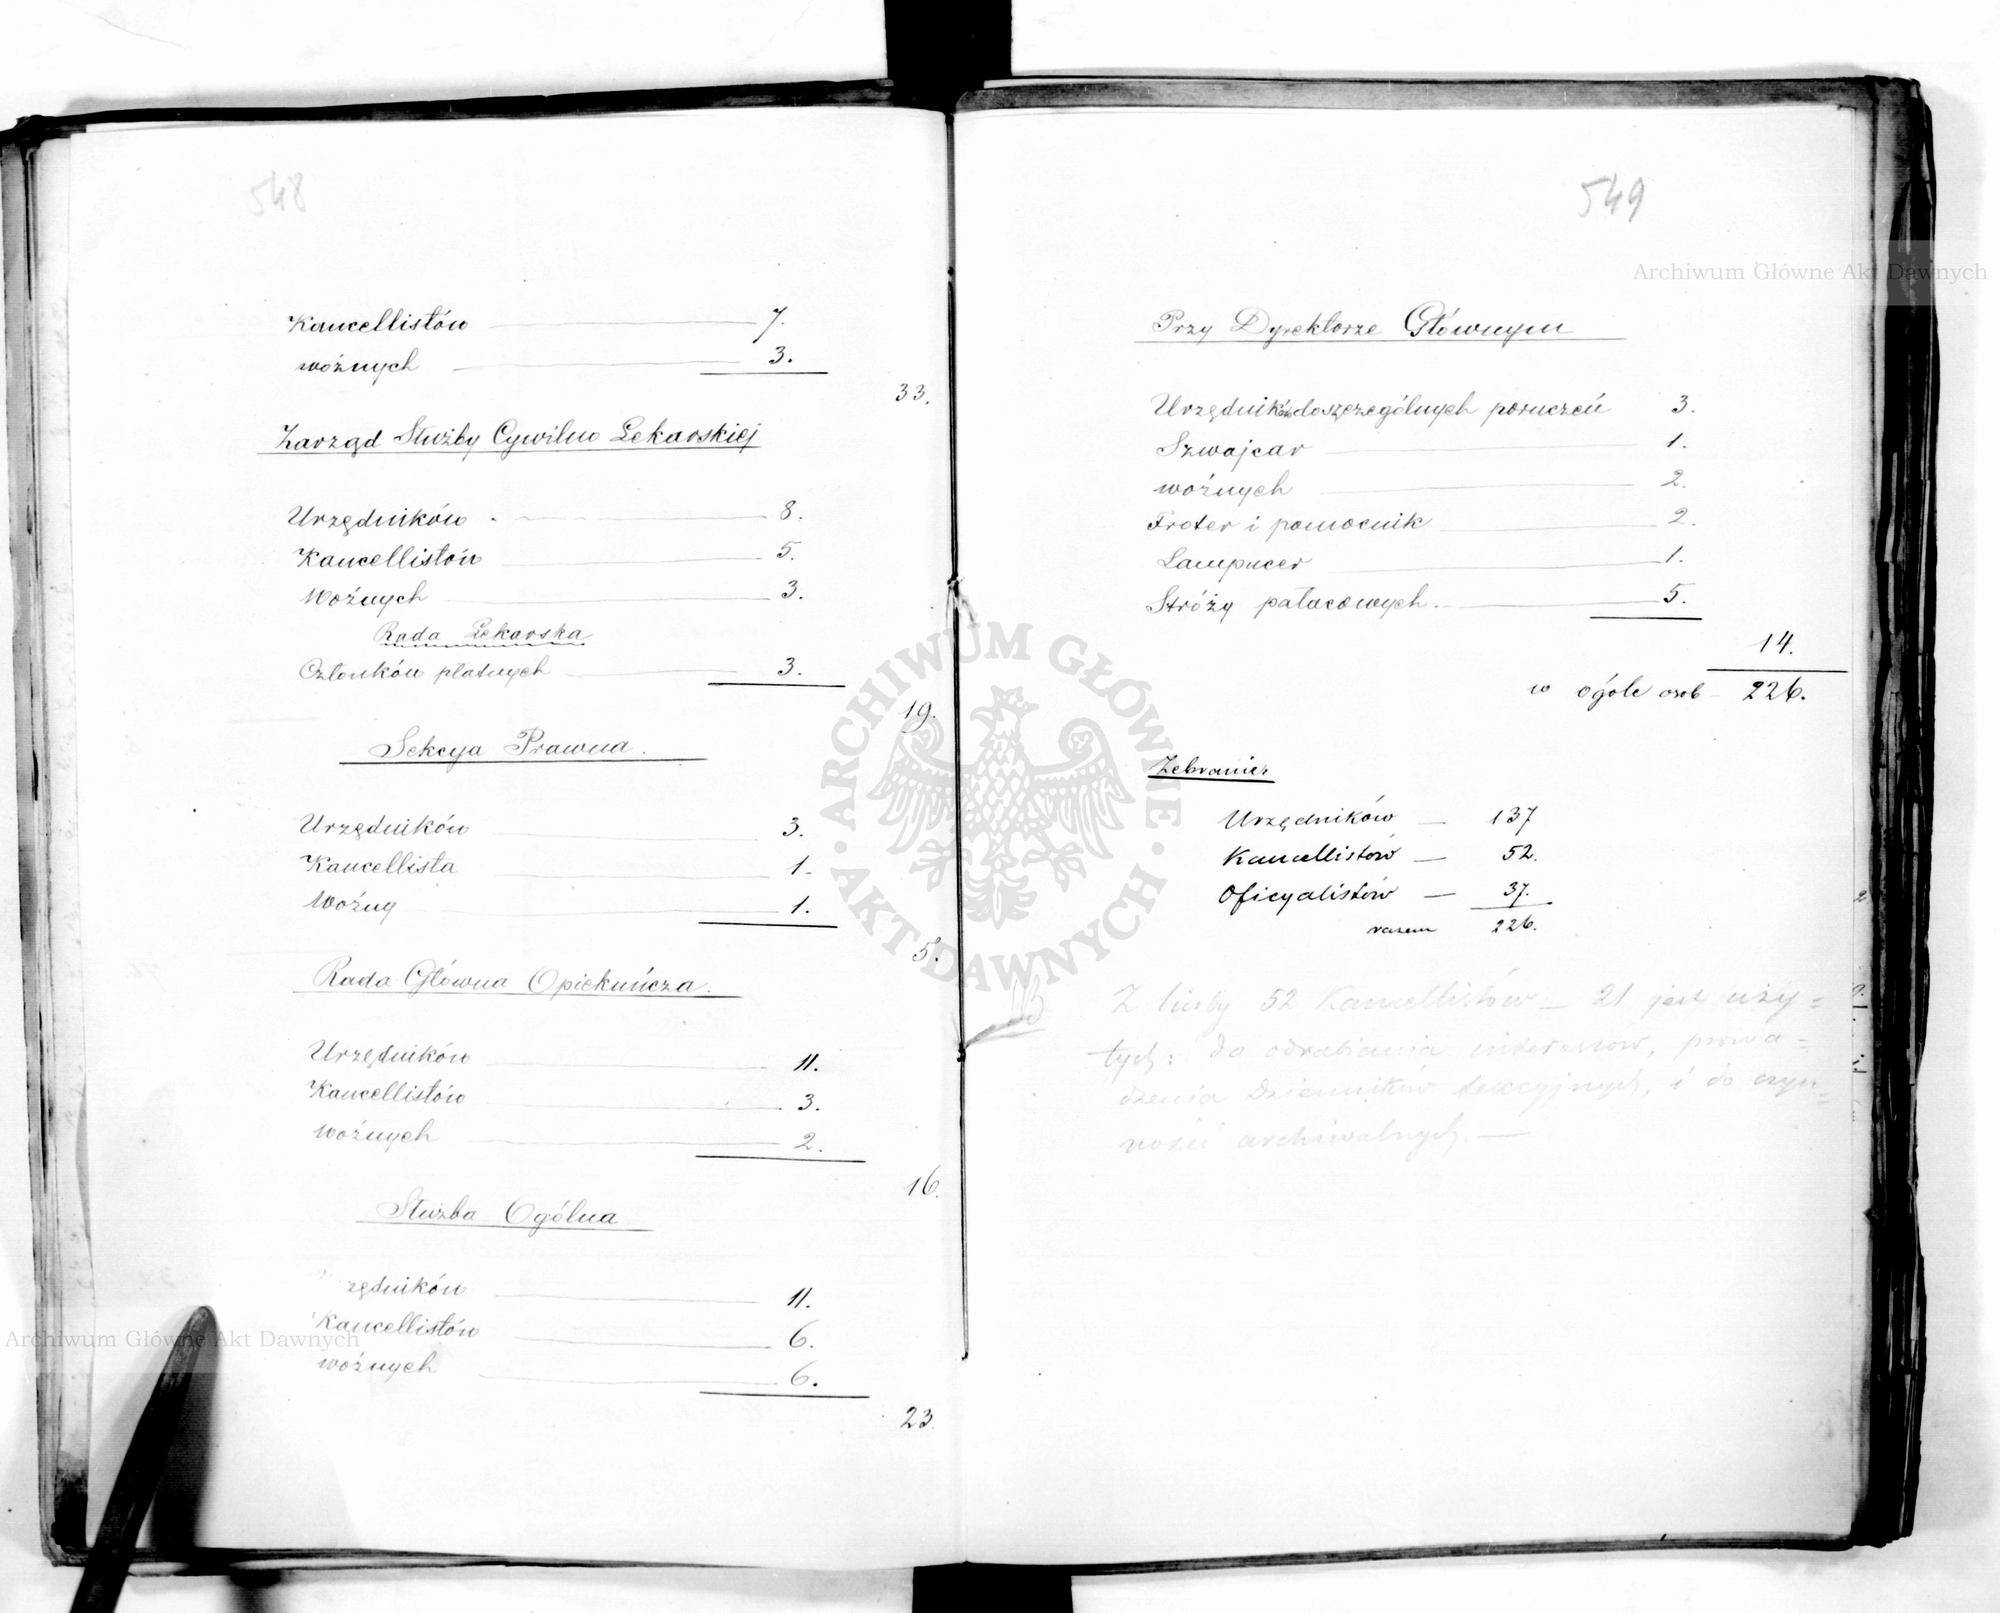 548
Kancellistów 7.
woźnych 3.
33.
Zarząd Służby Cywilno Lekarskiej
Urzędników 8.
Kancellistów 5.
Woźnych 3.
Rada Lekarska
Członków płatnych 3.
19.
Sekcya Prawna.
Urzędników 3.
Kancellista 1.
Woźny 1.
5.
Rada Główna Opiekuńcza.
Urzędników 11.
Kancellistów 3.
woźnych 2.
16.
Służba Ogólna
zędników 11.
Kancellistów 6.
woźnych 6.
23.
549
Przy Dyrektorze Głównym
Urzędników do szczególnych poruczeń 3.
Szwajcar 1.
woźnych 2.
Froter i pomocnik 2.
Lampucer 1.
Stróży pałacowych. 5.
14.
w ogóle osób 226.
Zebranie:
Urzędników — 137
Kancellistów — 52.
Oficyalistów — 37.
razem 226.
NB Z liczby 52 Kancellistów — 21 jest uży=
tych: do odrabiania interesów, prowa=
dzenia Dzienników sekcyjnych, i do czyn=
ności archiwalnych. —
Archiwum Główne Akt Dawnych
ARCHIWUM GŁÓWNE AKT DAWNYCH
Archiwum Główne Akt Dawnych